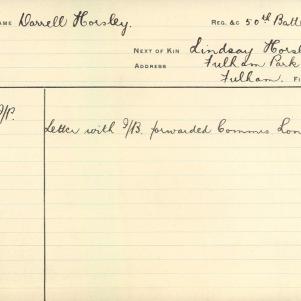 NAME Darrell Horsley. REG. &C 50th Batt
NEXT OF KIN Lindsay Horsl
ADDRESS Fulham Park
Fulham. FI
I/P. Letter with I/B. forwarded Commis Lon